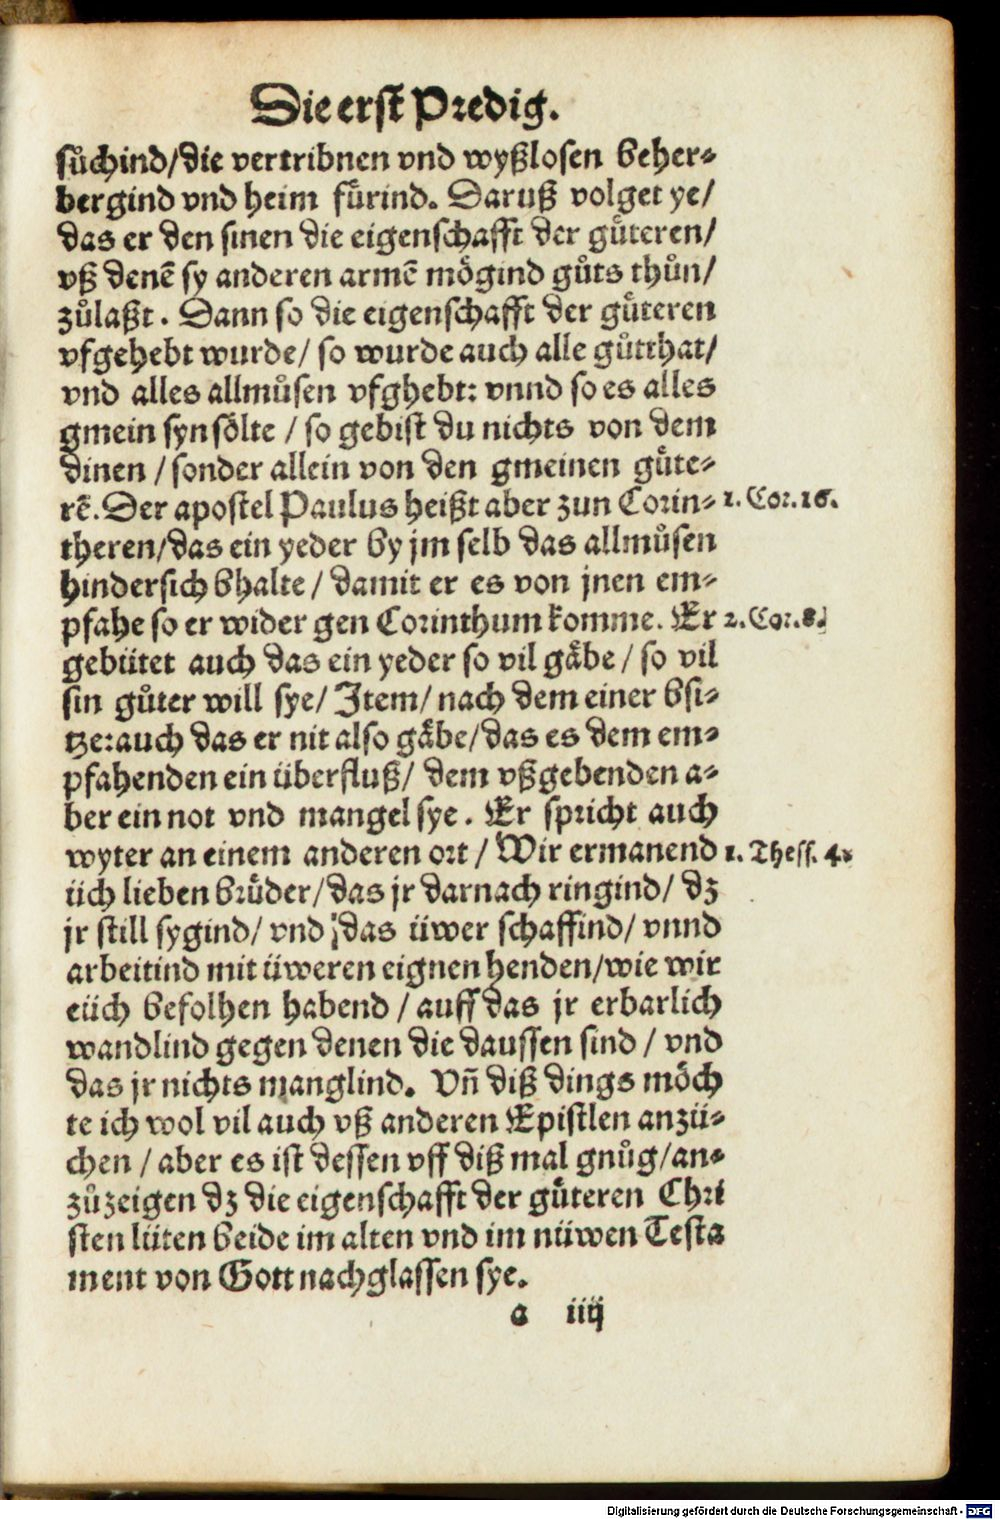 Die erst Predig.
sůchind/die vertribnen vnd wyßlosen beher⸗
bergind vnd heim fürind. Daruß volget ye/
das er den sinen die eigenschafft der güteren/
vß denē sy anderen armē mögind gůts thůn/
zůlaßt. Dann so die eigenschafft der güteren
vfgehebt wurde/ so wurde auch alle gůtthat/
vnd alles allmůsen vfghebt: vnnd so es alles
gmein syn sölte / so gebist du nichts von dem
dinen / sonder allein von den gmeinen güte⸗
rē. Der apostel Paulus heißt aber zun Corin⸗ 1. Cor. 16.
theren/das ein yeder by jm selb das allmůsen
hindersich bhalte / damit er es von jnen em⸗
pfahe so er wider gen Corinthum komme. Er 2. Cor. 8.
gebütet auch das ein yeder so vil gäbe / so vil
sin gůter will sye/ Item/ nach dem einer bsi⸗
tze: auch das er nit also gäbe/das es dem em⸗
pfahenden ein überfluß/ dem vßgebenden a⸗
ber ein not vnd mangel sye. Er spricht auch
wyter an einem anderen ort / Wir ermanend 1. Thess. 4.
üch lieben brüder/das jr darnach ringind/ dz
jr still sygind/ vnd das üwer schaffind/ vnnd
arbeitind mit üweren eignen henden/wie wir
eüch befolhen habend / auff das jr erbarlich
wandlind gegen denen die daussen sind / vnd
das jr nichts manglind. Vñ diß dings möch
te ich wol vil auch vß anderen Epistlen anzü⸗
chen / aber es ist dessen vff diß mal gnůg/an⸗
zůzeigen dz die eigenschafft der güteren Chri
sten lüten beide im alten vnd im nüwen Testa
ment von Gott nachglassen sye.
a iiij
Digitalisierung gefördert durch die Deutsche Forschungsgemeinschaft - DFG